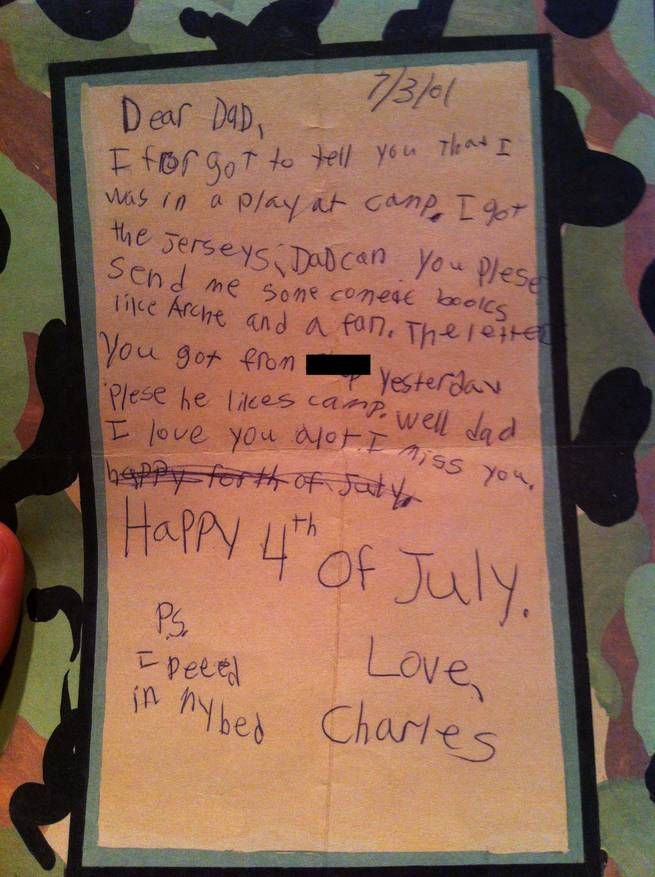 7/3/01
Dear DaD,
I forgot to tell you That I
was in a play at camp. I got
the Jerseys, DaD can you plese
Send me some comeic books
like Archie and a fan. The letter
You got from
yesterday
Plese he likes camp. Well dad
I love you alot. I miss you.
happy forth of July.
Happy 4th of July.
P.S.
I peeed
in my bed
Love,
Charles